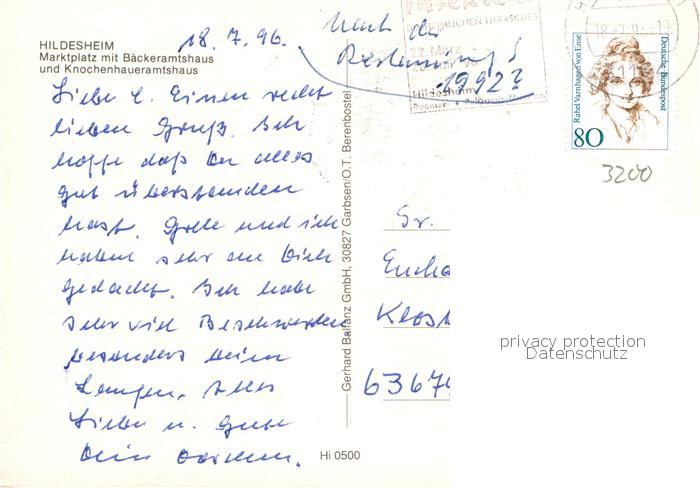 HILDESHEIM
Marktplatz mit Bäckeramtshaus
und Knochenhaueramtshaus
18. 7. 96.
Nach der
Restaurierung
1992?
Liebe E. Einen recht
lieben Gruß. Ich
hoffe daß Du alles
gut überstanden
hast. Grete und ich
haben sehr an Dich
gedacht. Ich habe
sehr viel Beschwerden
besonders beim
Alles
Liebe u. Gute
Dein
Gerhard Ballanz GmbH, 30827 Garbsen/O.T. Berenbostel
Hi 0500
22. März
Hildesheim
18.-7.96-19
11
Rahel Varnhagen von Ense
Deutsche Bundespost
80
3200
Fr.
Klos
6367
privacy protection
Datenschutz